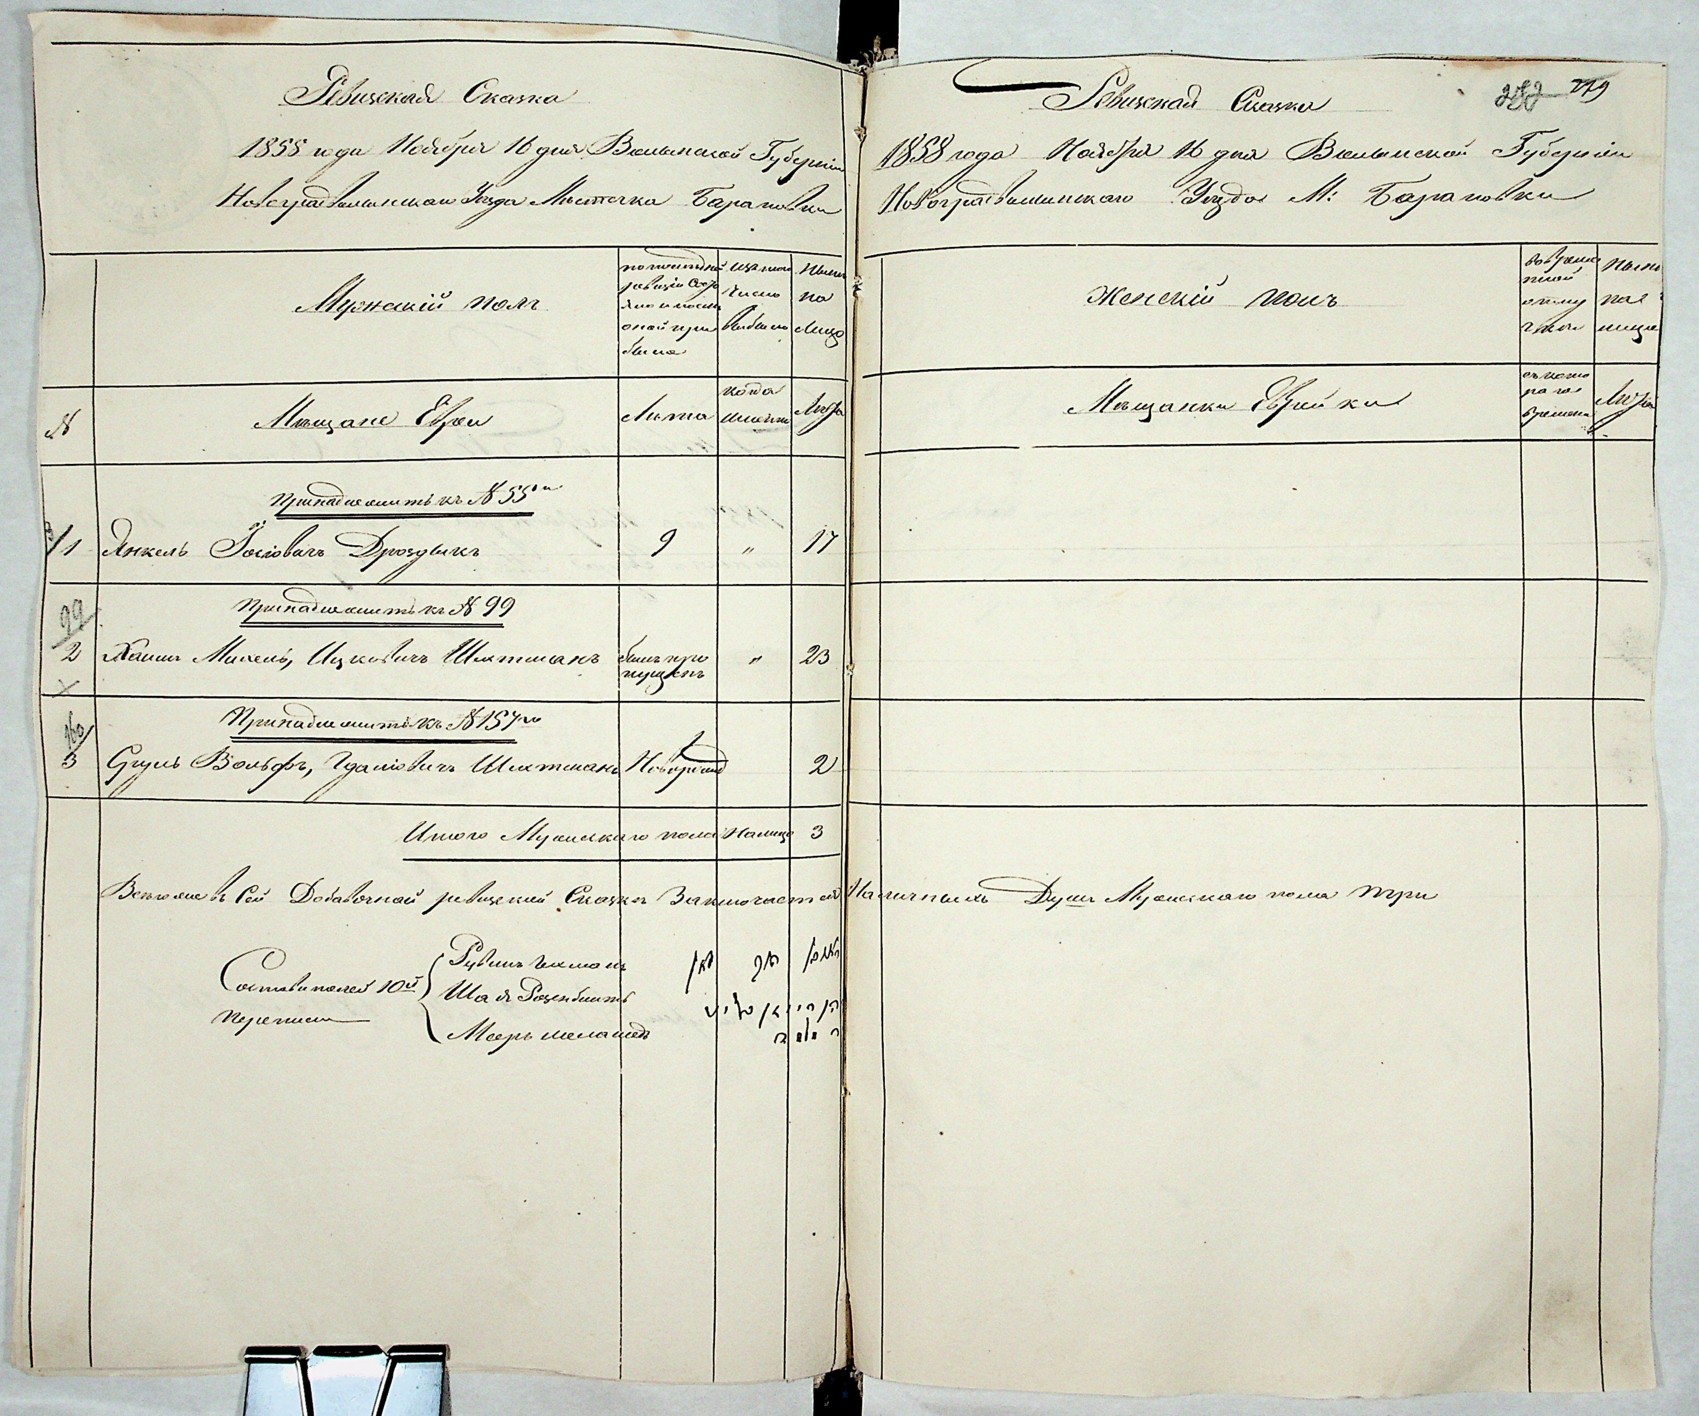 Ревизская Сказка
1858 года Ноября 16 дня Волынской Губерніи
Новоградволынскаго Уезда Местечка Барановки
Мужскій полъ
по последней ревизіи состояло и после оной прибыло
изъ того числа выбыло
Ныне на лицо
№
Мещане Евреи
Лета
когда именно
Лета
Принадлежитъ къ № 55му
1 Янкель Іосіовичъ Дроздикъ 9 „ 17
Принадлежитъ къ № 99
99
2 Хаимъ Михель, Ицковичъ Шихтманъ былъ пропущенъ „ 23
Принадлежитъ къ № 157му
160
3 Сруль Вольфъ, Гдаліовичъ Шихтманъ Новорожд 2
Итого Мужескаго пола Налицо 3
Всего же въ Сей Добавочной ревизской Сказке Заключается Наличныхъ Душъ Мужескаго пола три
Составителей 10й переписи
Рувинъ Гехманъ
Шая Розенблитъ
Мееръ меламедъ
Ревизская Сказка
279
1858 года Ноября 16 дня Волынской Губерніи
Новоградволынскаго Уезда М: Барановки
Женскій полъ
во временной отлучке
Ныне на лице
Мещанки Еврейки
съ котораго времени
Лета